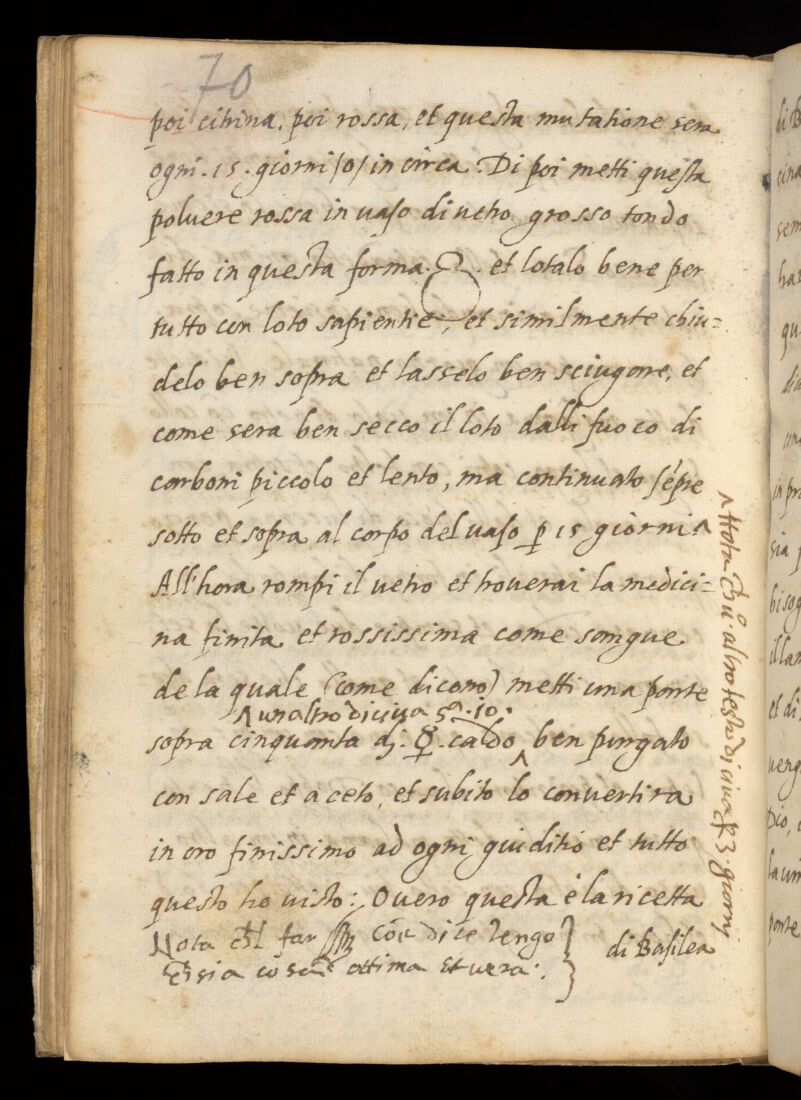 70
poi citrina, poi rossa, et questa mutatione sera
ogni .15. giorni /o/ in circa. Di poi metti questa
poluere rossa in uaso di uetro grosso tondo
fatto in questa forma. et lotalo bene per
tutto con loto sapientie, et similmente chiu=
delo ben sopra et lasselo ben sciugare, et
come sera ben secco il loto dalli fuoco di
carboni piccolo et lento, ma continuato sẽpre
sotto et sopra al corpo del uaso p 15 giorni ^
All'hora rompi il uetro et trouerai la medici=
na finita et rossissima come sangue
de la quale (come dicono) metti una parte
^ un altro diciua 50.10.
sopra cinquanta di ☿ caldo ^ ben purgato
con sale et aceto, et subito lo conuertira
in oro finissimo ad ogni guiditio et tutto
questo ho uisto: Ouero questa è la ricetta
di Basilea
Nota far dice Tengo
sia cosa ottima et uera:
^ Nota altro testo diciua 3. giorni